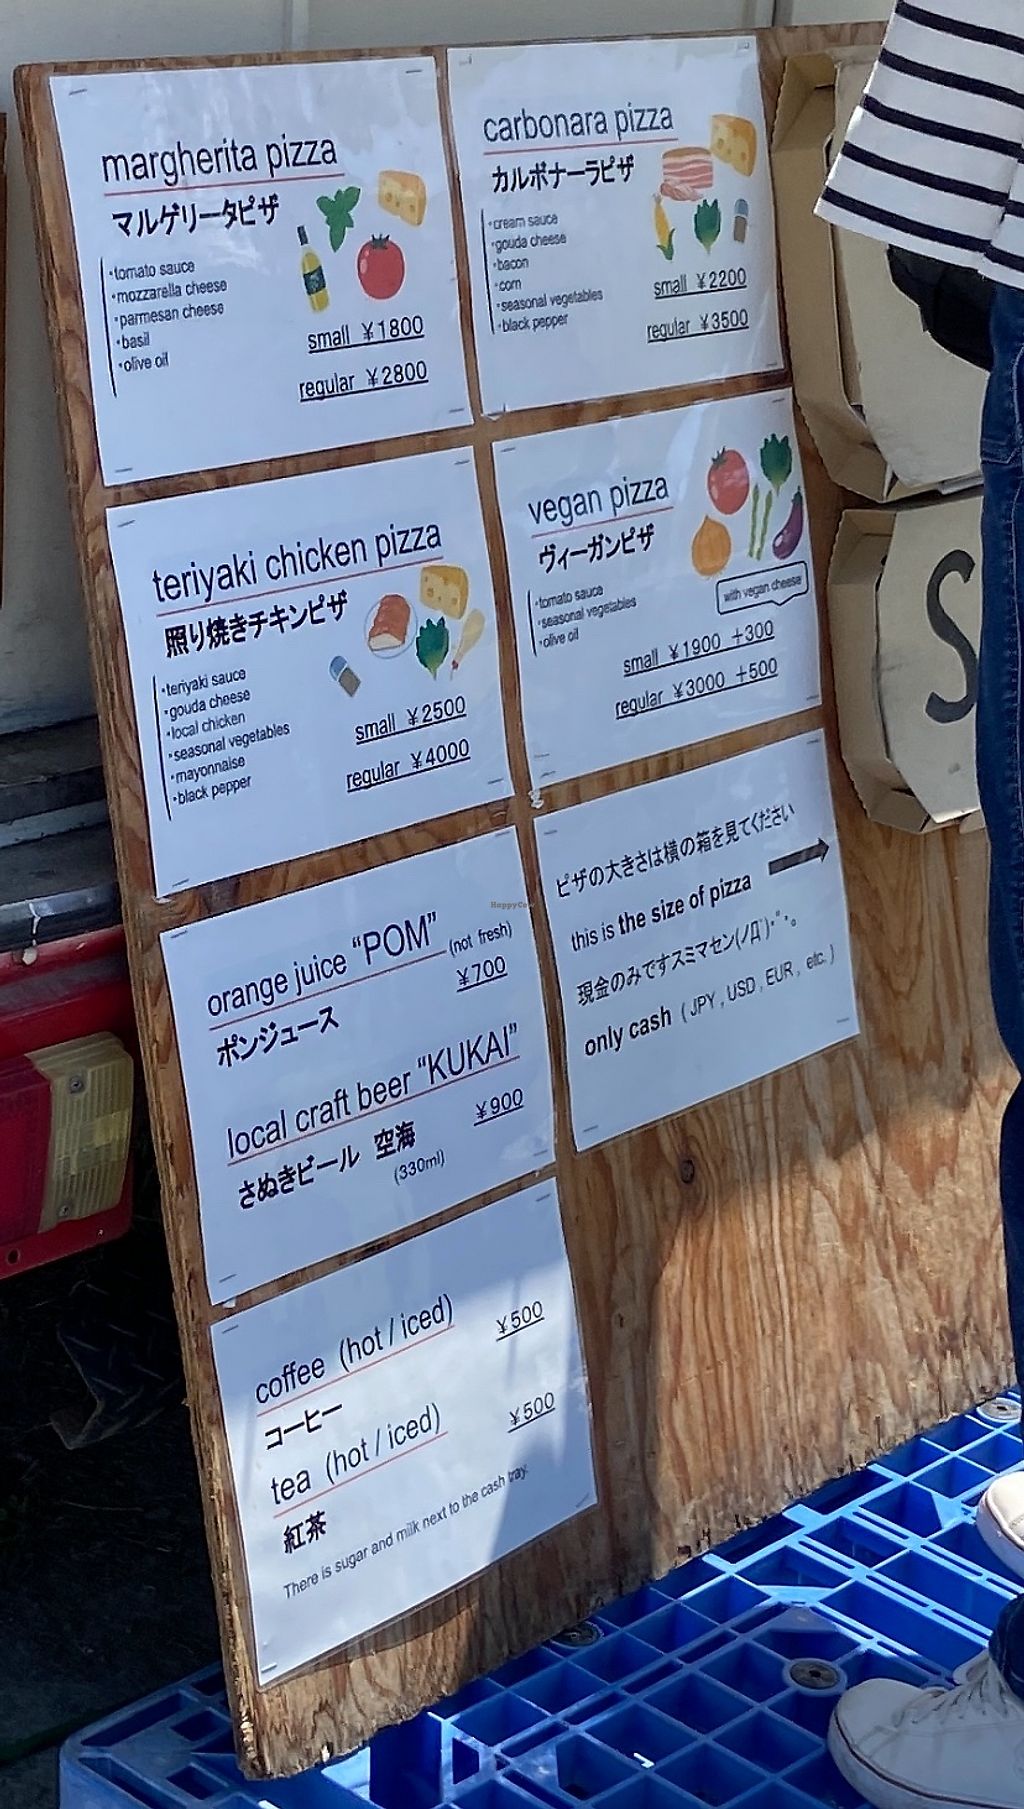 margherita pizza
マルゲリータピザ
・tomato sauce
・mozzarella cheese
・parmesan cheese
・basil
・olive oil
small ￥1800
regular ￥2800
carbonara pizza
カルボナーラピザ
・cream sauce
・gouda cheese
・bacon
・corn
・seasonal vegetables
・black pepper
small ￥2200
regular ￥3500
teriyaki chicken pizza
照り焼きチキンピザ
・teriyaki sauce
・gouda cheese
・local chicken
・seasonal vegetables
・mayonnaise
・black pepper
small ￥2500
regular ￥4000
vegan pizza
ヴィーガンピザ
・tomato sauce
・seasonal vegetables
・olive oil
with vegan cheese
small ￥1900 +300
regular ￥3000 +500
orange juice “POM” (not fresh)
￥700
ポンジュース
local craft beer “KUKAI”
￥900
さぬきビール 空海
(330ml)
ピザの大きさは横の箱を見てください
this is the size of pizza
現金のみですスミマセン(ノД`)・゜・。
only cash ( JPY , USD , EUR , etc. )
coffee (hot / iced)
￥500
コーヒー
tea (hot / iced)
￥500
紅茶
There is sugar and milk next to the cash tray.
S
HappyCow